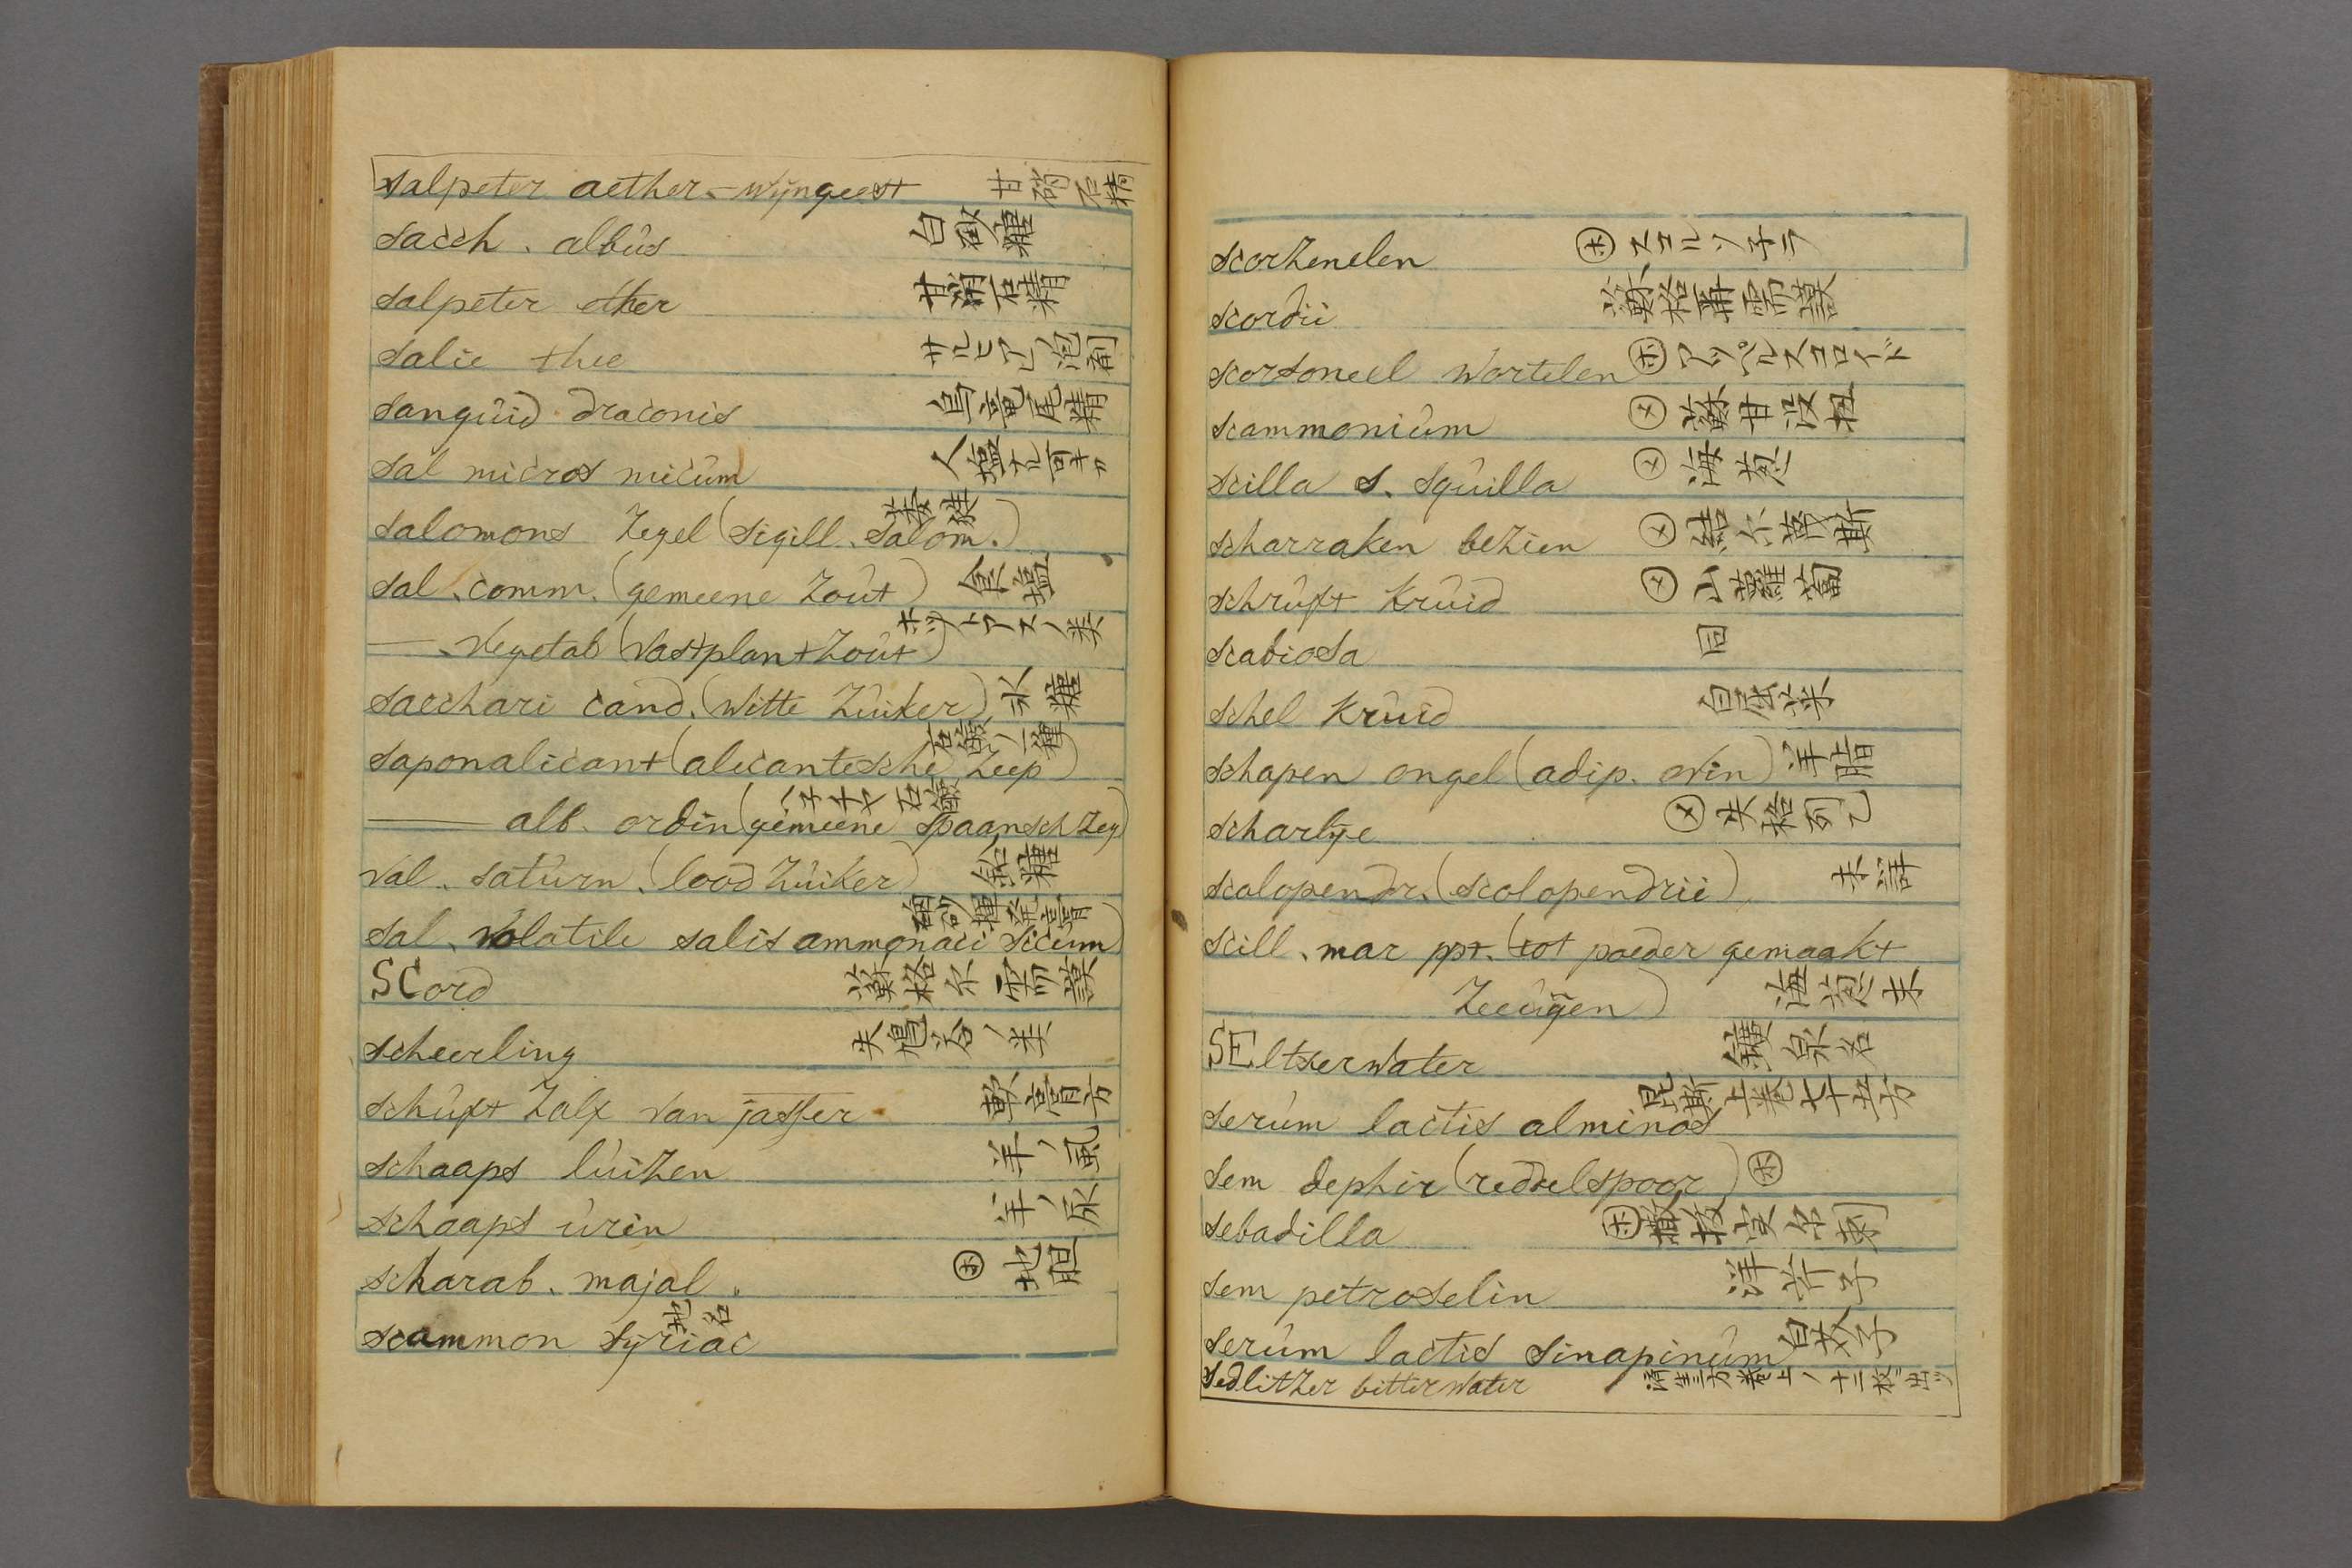 salpeter aether-wijngeest 甘硝石精
sacch. albus 白砂糖
salpeter ether 甘硝石精
salie thee サルヒアノ泡剤
sanguid draconis 竜 精
sal micros micum 人塩
salomons zegel (sigill. salom.) 萎蕤
sal. comm. (gemeene zout) 食塩
— vegetab (vastplantzout) ホットアスノ类
saechari cand. (witte zuiker) 氷糖
saponalicant (alicantesche zeep) 石鹸ノ一種
— alb. ordin (gemeene spaansch zeep) 石鹸
val. saturn. (lood zuiker) 鉛糖
sal. volatile salis ammonaci siccum) 磠砂揮発
SCord 蘇格尓 謨
scheerling 失鳩答ノ类
schuft zalf van jasser 軟膏方
schaaps luizen 羊ノ虱
schaaps urin 羊ノ尿
scharab. majal. ㋭ 地胆
scammon syriac 地名
scorzenelen ㋭ スコルソ子ラ
scordii 蘇格 謨
scorsoneel wortelen ㋭ アッペルスコロイド
scammonium ㋱ 蘇甘没
scilla s. squilla ㋱ 海葱
scharraken bezien ㋱
schruft kruid ㋱ 山蘿蔔
scabiosa 同
schel kruid 白屈菜
schapen ongel (adip. ovin) 羊脂
scharlye ㋱
scalopendr. (scolopendrii) 未詳
scill. mar ppt. (tot poeder gemaakt
zeeuijen) 海葱末
SEltserwater 鑛泉名
serum lactis alminos 上巻七十五方
sem dephir (reddelspoor) ㋭
sebadilla ㋭
sem petroselin 洋芹子
serum lactis sinapinum 白芥子
sedlitzer bitterwater 済生三方巻上ノ十二枚ニ出ツ